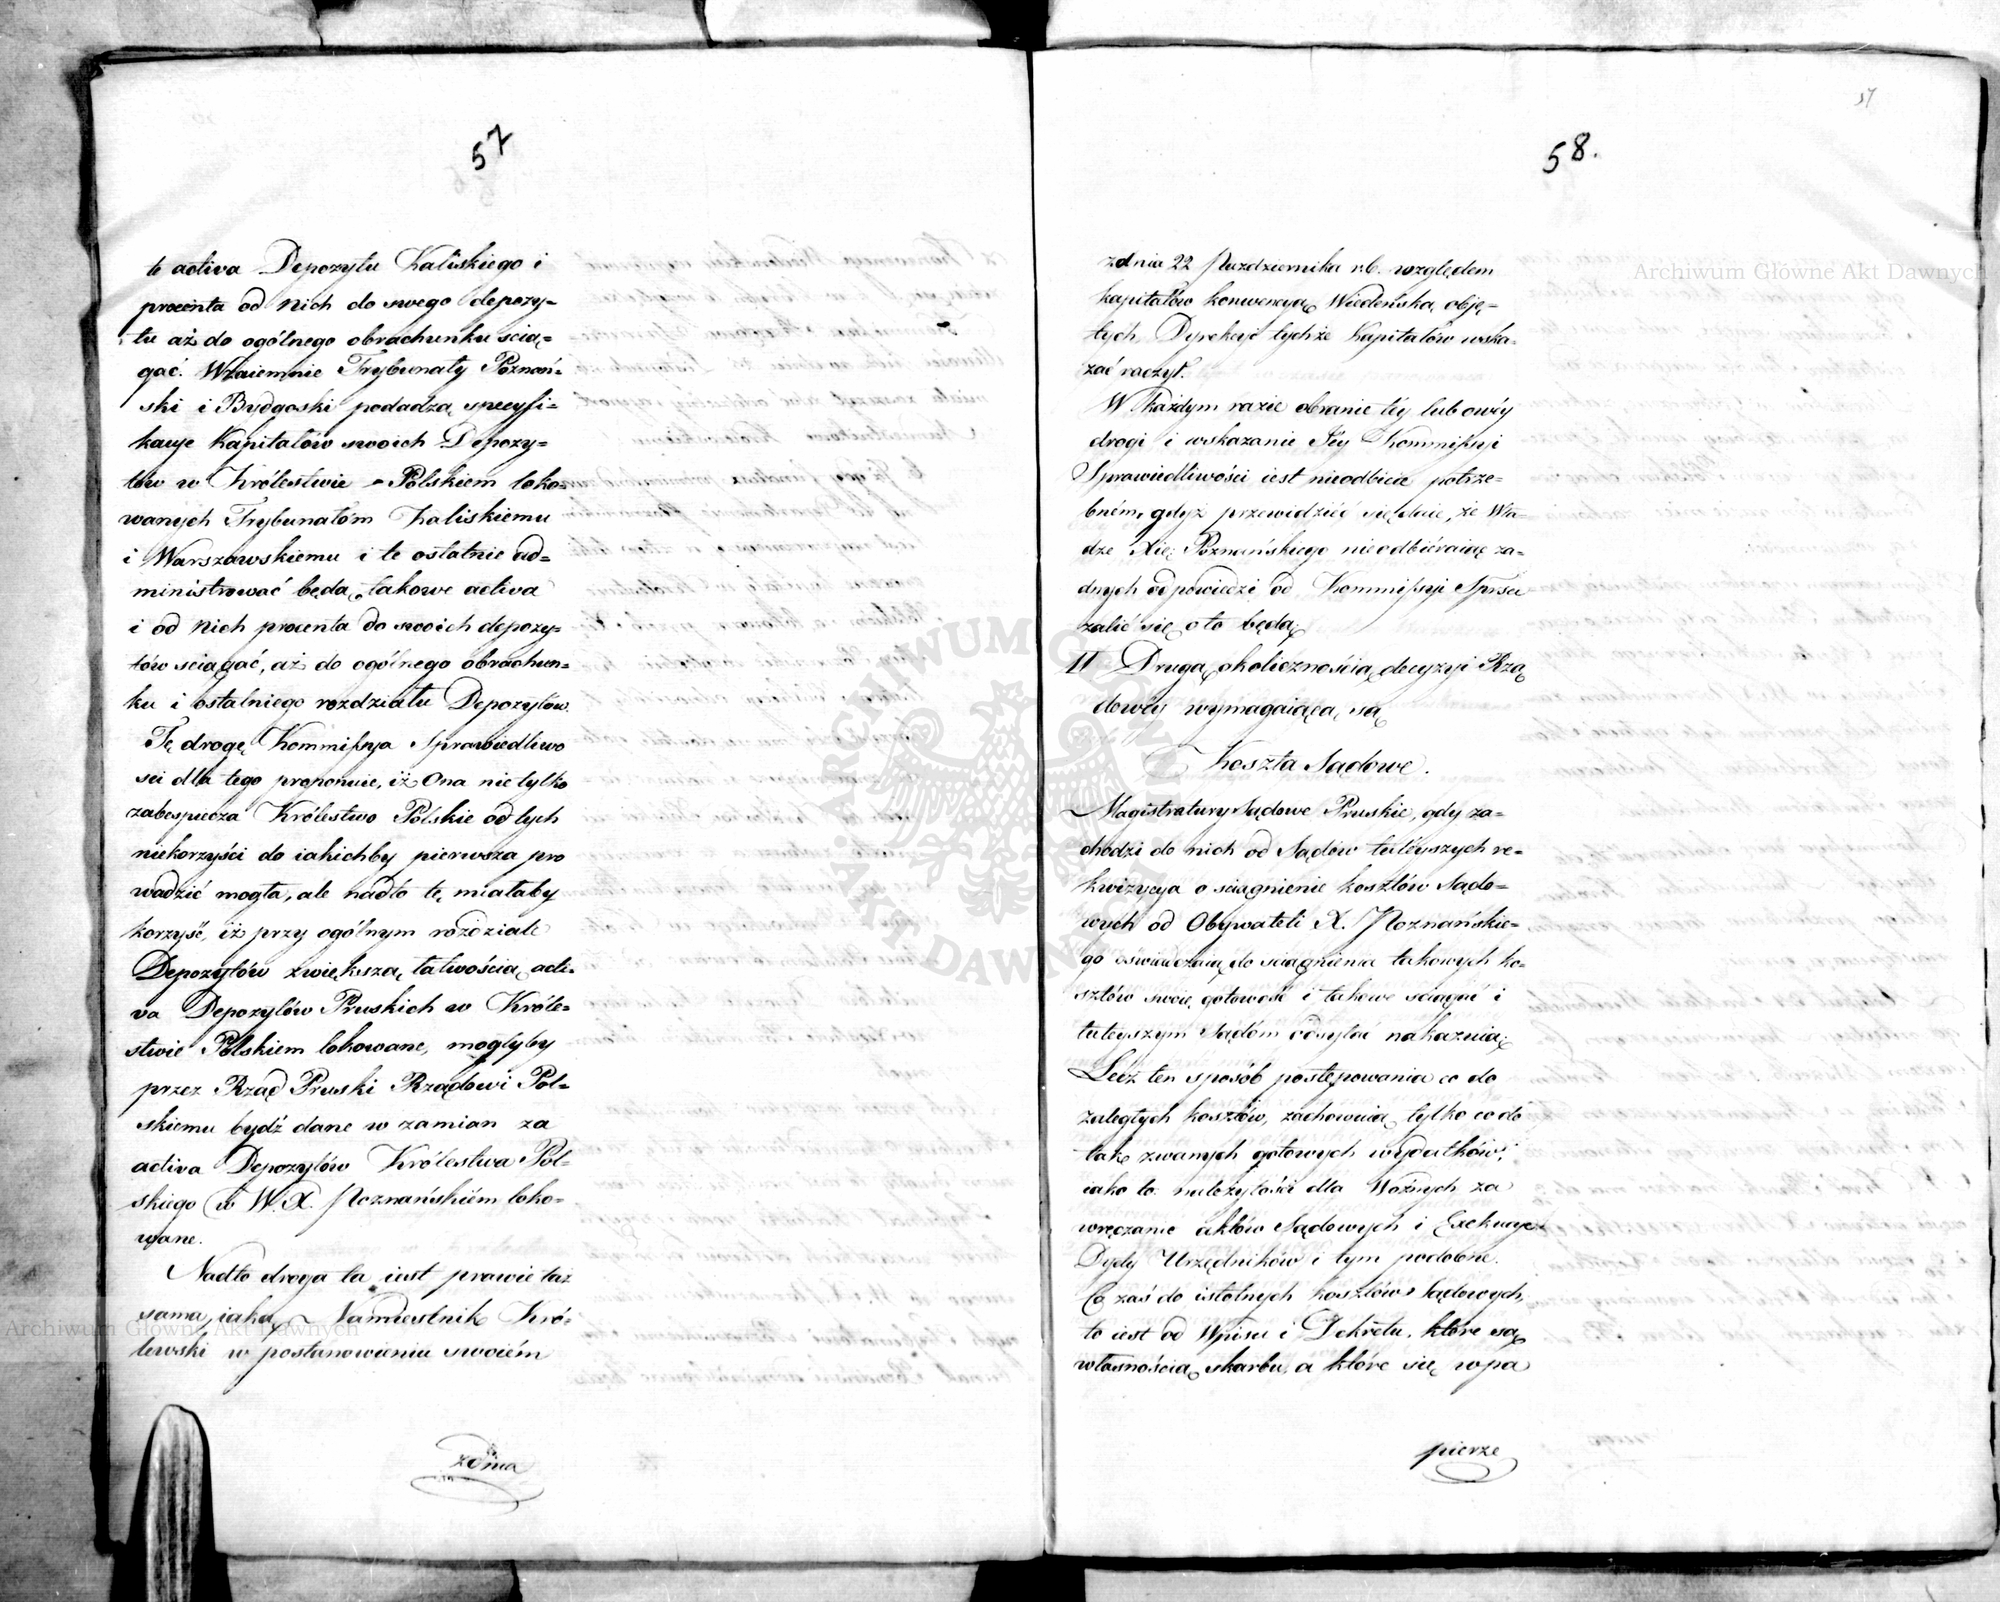 57
te activa Depozytu Kaliskiego i
procenta od nich do swego depozy=
tu aż do ogólnego obrachunku ścią=
gać. Wzaiemnie Trybunały Poznań=
ski i Bydgoski podadzą specyfi=
kacye Kapitałów swoich Depozy=
tów w Królestwie Polskiem loko=
wanych Trybunałóm Kaliskiemu
i Warszawskiemu i te ostatnie ad=
ministrować będą takowe activa
i od nich procenta do swoich depozy=
tów ściągać, aż do ogólnego obrachun=
ku i ostatniego rozdziału Depozytów.
Tę drogę Kommissya Sprawiedliwo
ści dla tego proponuie, iż Ona nie tylko
zabespiecza Królestwo Polskie od tych
niekorzyści do iakichby pierwsza pro
wadzić mogła, ale nadto tę miałaby
korzyść, iż przy ogólnym rozdziale
Depozytów z większą łatwością acti=
va Depozytów Pruskich w Króle=
stwie Polskiem lokowane, mogłyby
przez Rząd Pruski Rządowi Pol=
skiemu bydź dane w zamian za
activa Depozytów Królestwa Pol=
skiego w W. X. Poznańskiém loko=
wane.
Nadto droga ta iest prawie taż
sama, iaką Namiestnik Kró=
lewski w postanowieniu swoiém
z dnia
57
58.
z dnia 22 Października r.b. względem
kapitałów konwencyą Wiedeńską obję=
tych, Dyrekcyi tychże Kapitałów wska=
zać raczył.
W każdym razie obranie téy lub owéy
drogi i wskazanie Jey Kommissyi
Sprawiedliwości iest nieodbicie potrze=
bném, gdyż przewidzieć się daie, że Wła=
dze Xię: Poznańskiego nieodbiéraiąc ża=
dnych odpowiedzi od Kommissyi Spraw
żalić się o to będą.
II Drugą okolicznością decyzyi Rzą
dowéy wymagaiącą są
Koszta Sądowe.
Magistratury Sądowe Pruskie, gdy za=
chodzi do nich od Sądów tuteyszych re=
kwizycya o ściągnienie kosztów Sądo=
wych od Obywateli X. Poznańskie=
go oświadczaią do ściągnienia takowych ko=
sztów swoię gotowość i takowe ściągać i
tuteyszym Sądóm odsyłać nakazuią.
Lecz ten sposób postępowania co do
zaległych kosztów, zachowuią tylko co do
tak zwanych gotowych wydatków,
iako to: należytości dla Woźnych za
wręczanie aktów Sądowych i Exekucye
Dyety Urzędników i tym podobne.
Co zaś do istotnych kosztów Sądowych,
to iest od Wpisu i Dekretu, które są
własnością skarbu, a które się w pa
pierze
Archiwum Główne Akt Dawnych
Archiwum Główne Akt Dawnych
ARCHIWUM GŁÓWNE AKT DAWNYCH